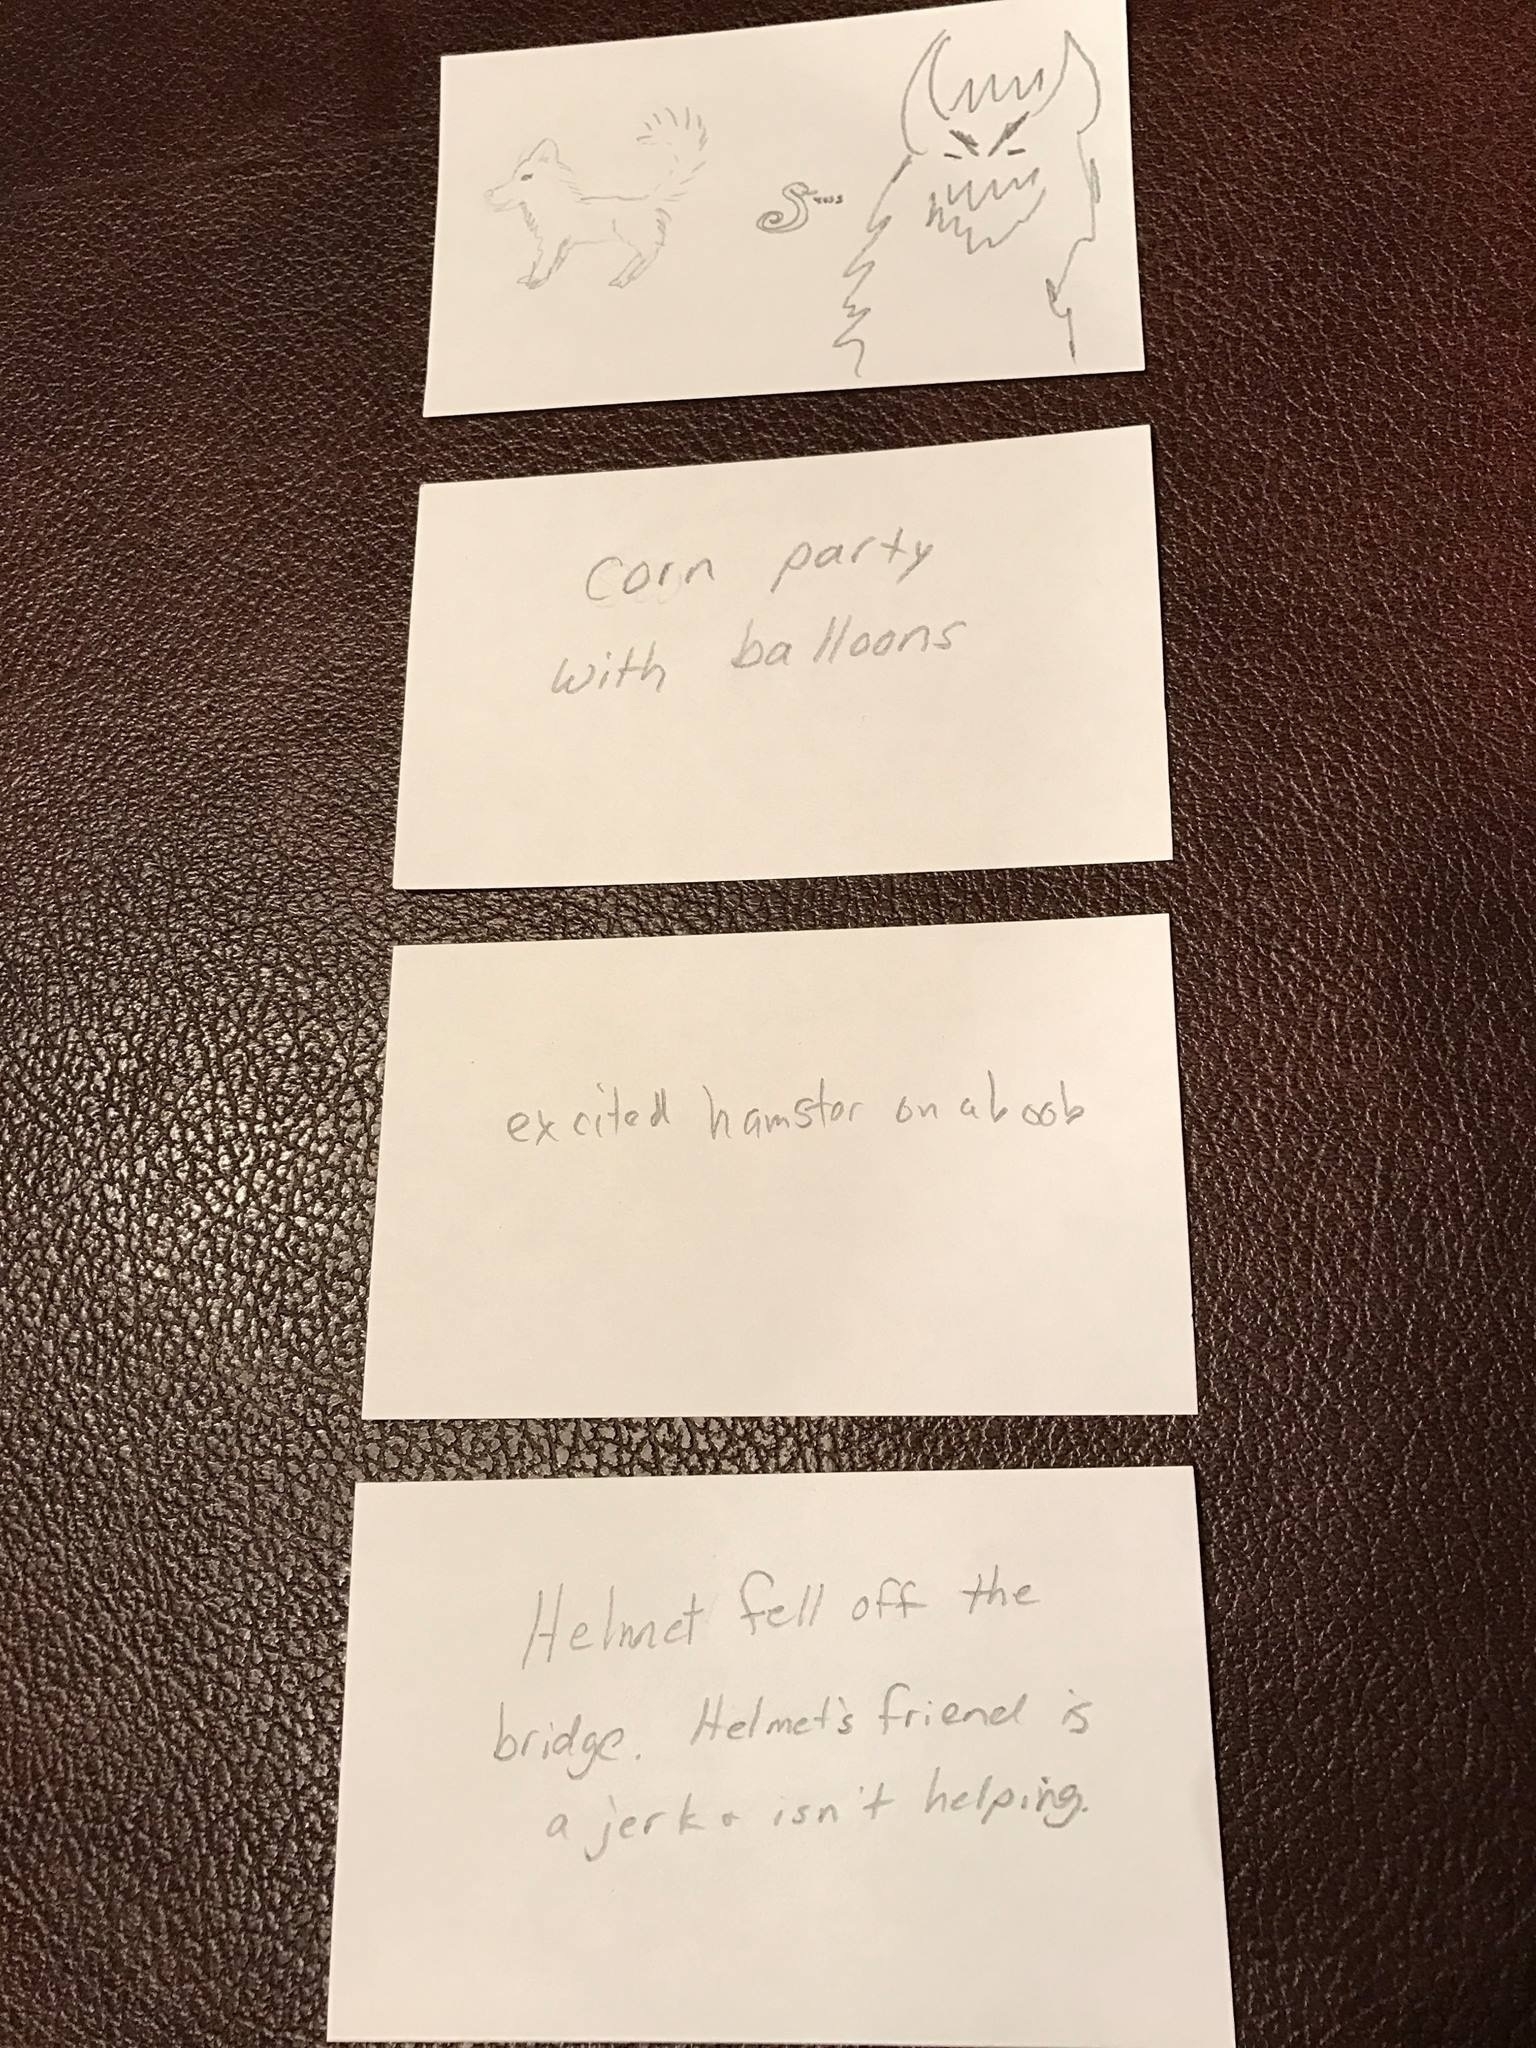 corn party
with balloons
excited hamstor on a boob
Helmet fell off the
bridge. Helmet's friend is
a jerk & isn't helping.